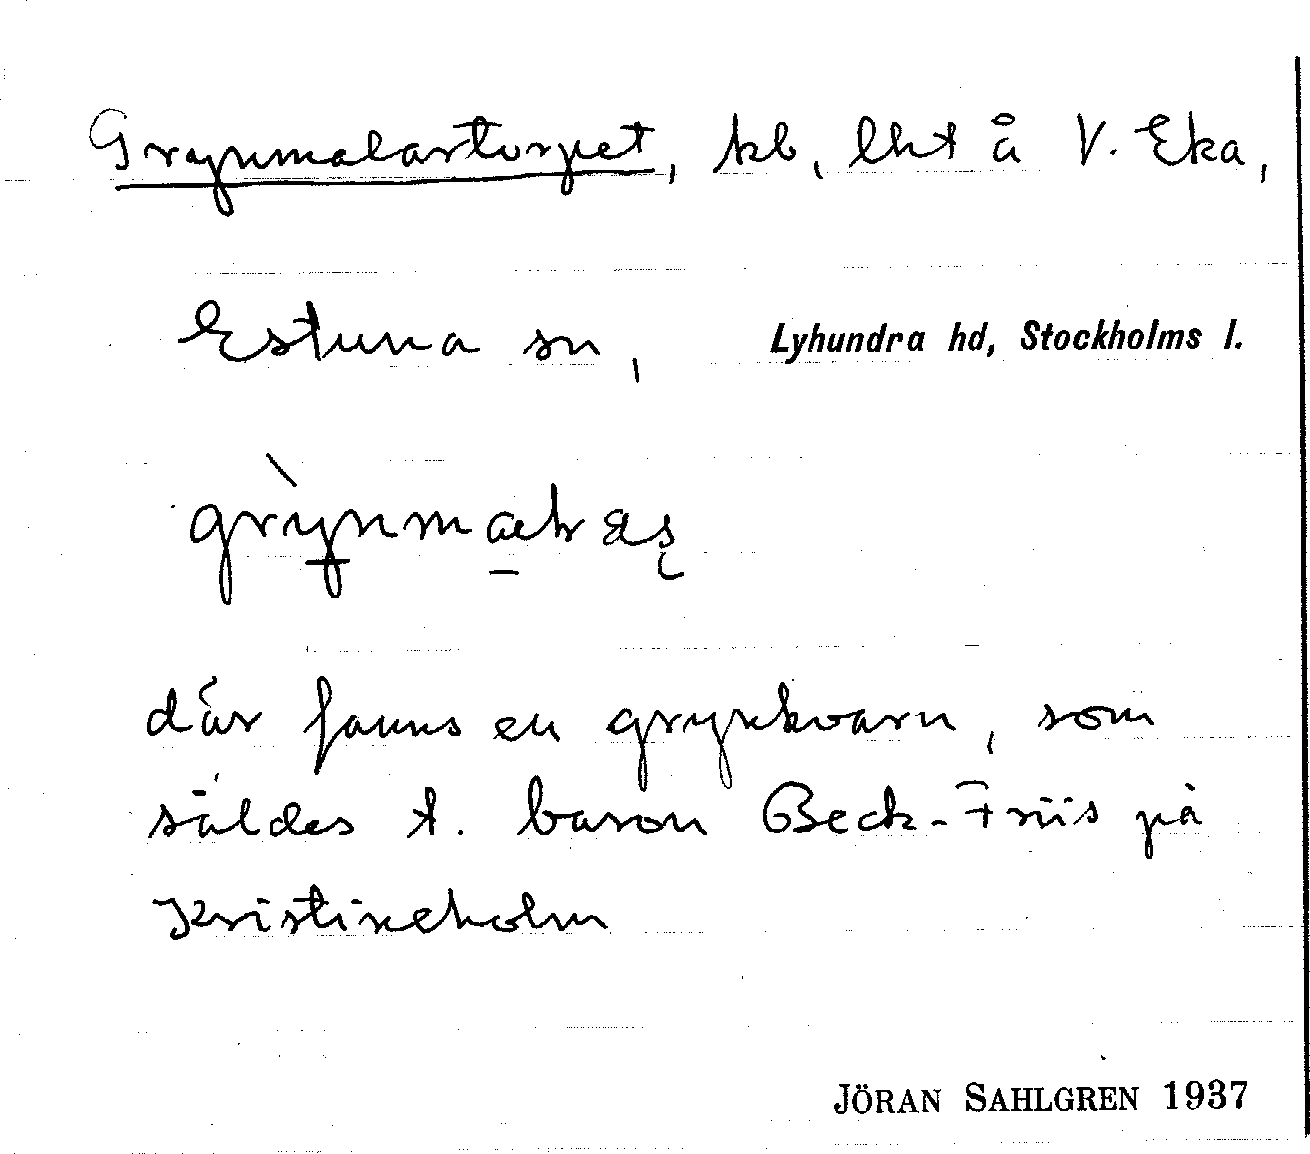 Grynmalartorpet, kb, lht å V. Eka,
Estuna sn, Lyhundra hd, Stockholms l.
där fanns en grynkvarn, som
såldes t. baron Beck-Friis på
Kristineholm
JÖRAN SAHLGREN 1937